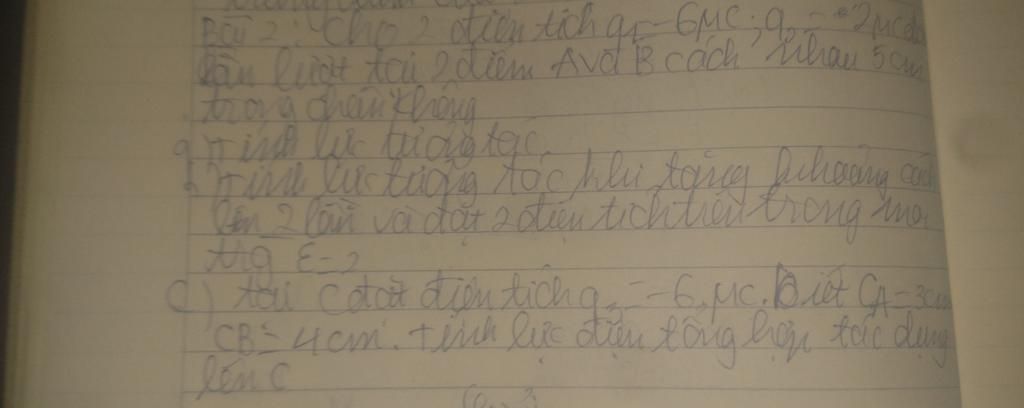 Bài 2: Cho 2 điện tích q1=-6μC; q2=-2μC đặt
lần lượt tại 2 điểm A và B cách nhau 5cm
trong chân không
a, Tính lực tương tác.
b, Tính lực tương tác khi tăng khoảng cách
lên 2 lần và đặt 2 điện tích trên trong môi
trg ε=2
c) tại C đặt điện tích q3=-6.μC. Biết CA=3cm
CB=4cm. Tính lực điện tổng hợp tác dụng
lên C